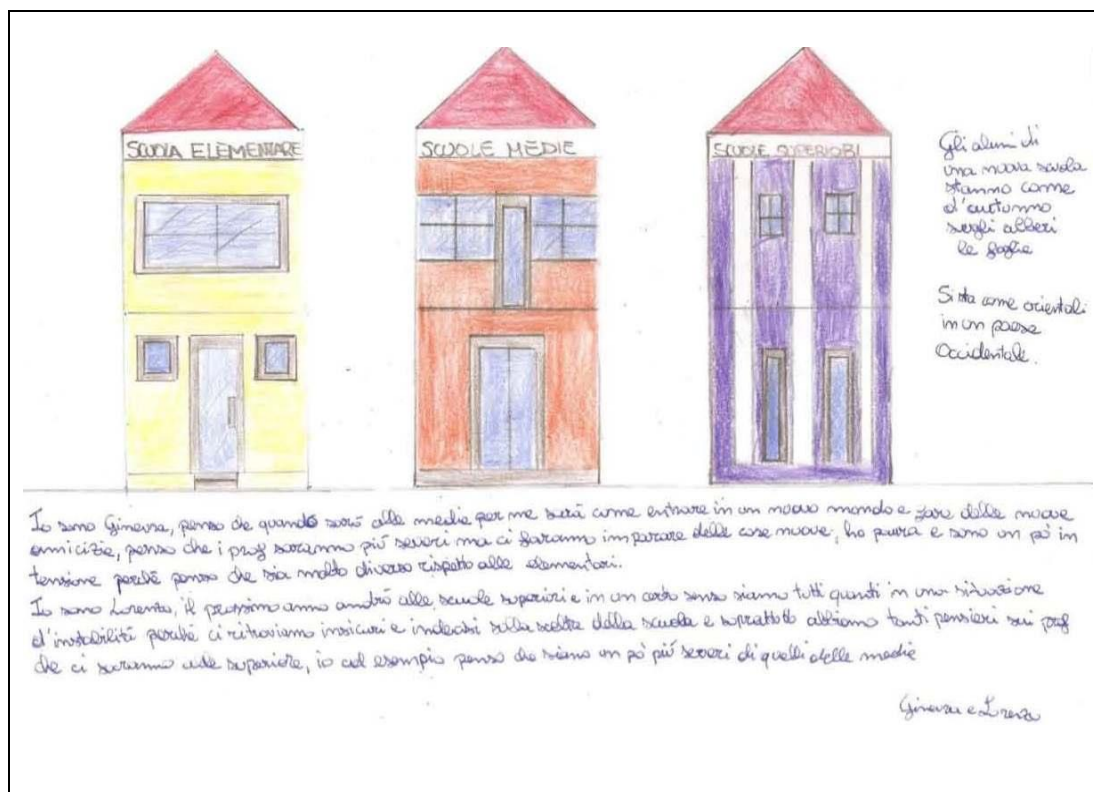 SCUOLA ELEMENTARE
SCUOLE MEDIE
SCUOLE SUPERIORI
Gli alunni di
una nuova scuola
stanno come
d'autunno
sugli alberi
le foglie
Si sta come orientali
in un paese
Occidentale.
Io sono Ginevra, penso che quando sarò alle medie per me sarà come entrare in un nuovo mondo e fare delle nuove
amicizie, penso che i prof saranno più severi ma ci faranno imparare delle cose nuove; ho paura e sono un pò in
tensione perché penso che sia molto diverso rispetto alle elementari.
Io sono Lorenzo, il prossimo anno andrò alle scuole superiori e in un certo senso siamo tutti quanti in una situazione
d'instabilità perché ci ritroviamo insicuri e indecisi sulla scelta della scuola e soprattutto abbiamo tanti pensieri sui prof
che ci saranno alle superiori, io ad esempio penso che siano un pò più severi di quelli delle medie
Ginevra e Lorenzo